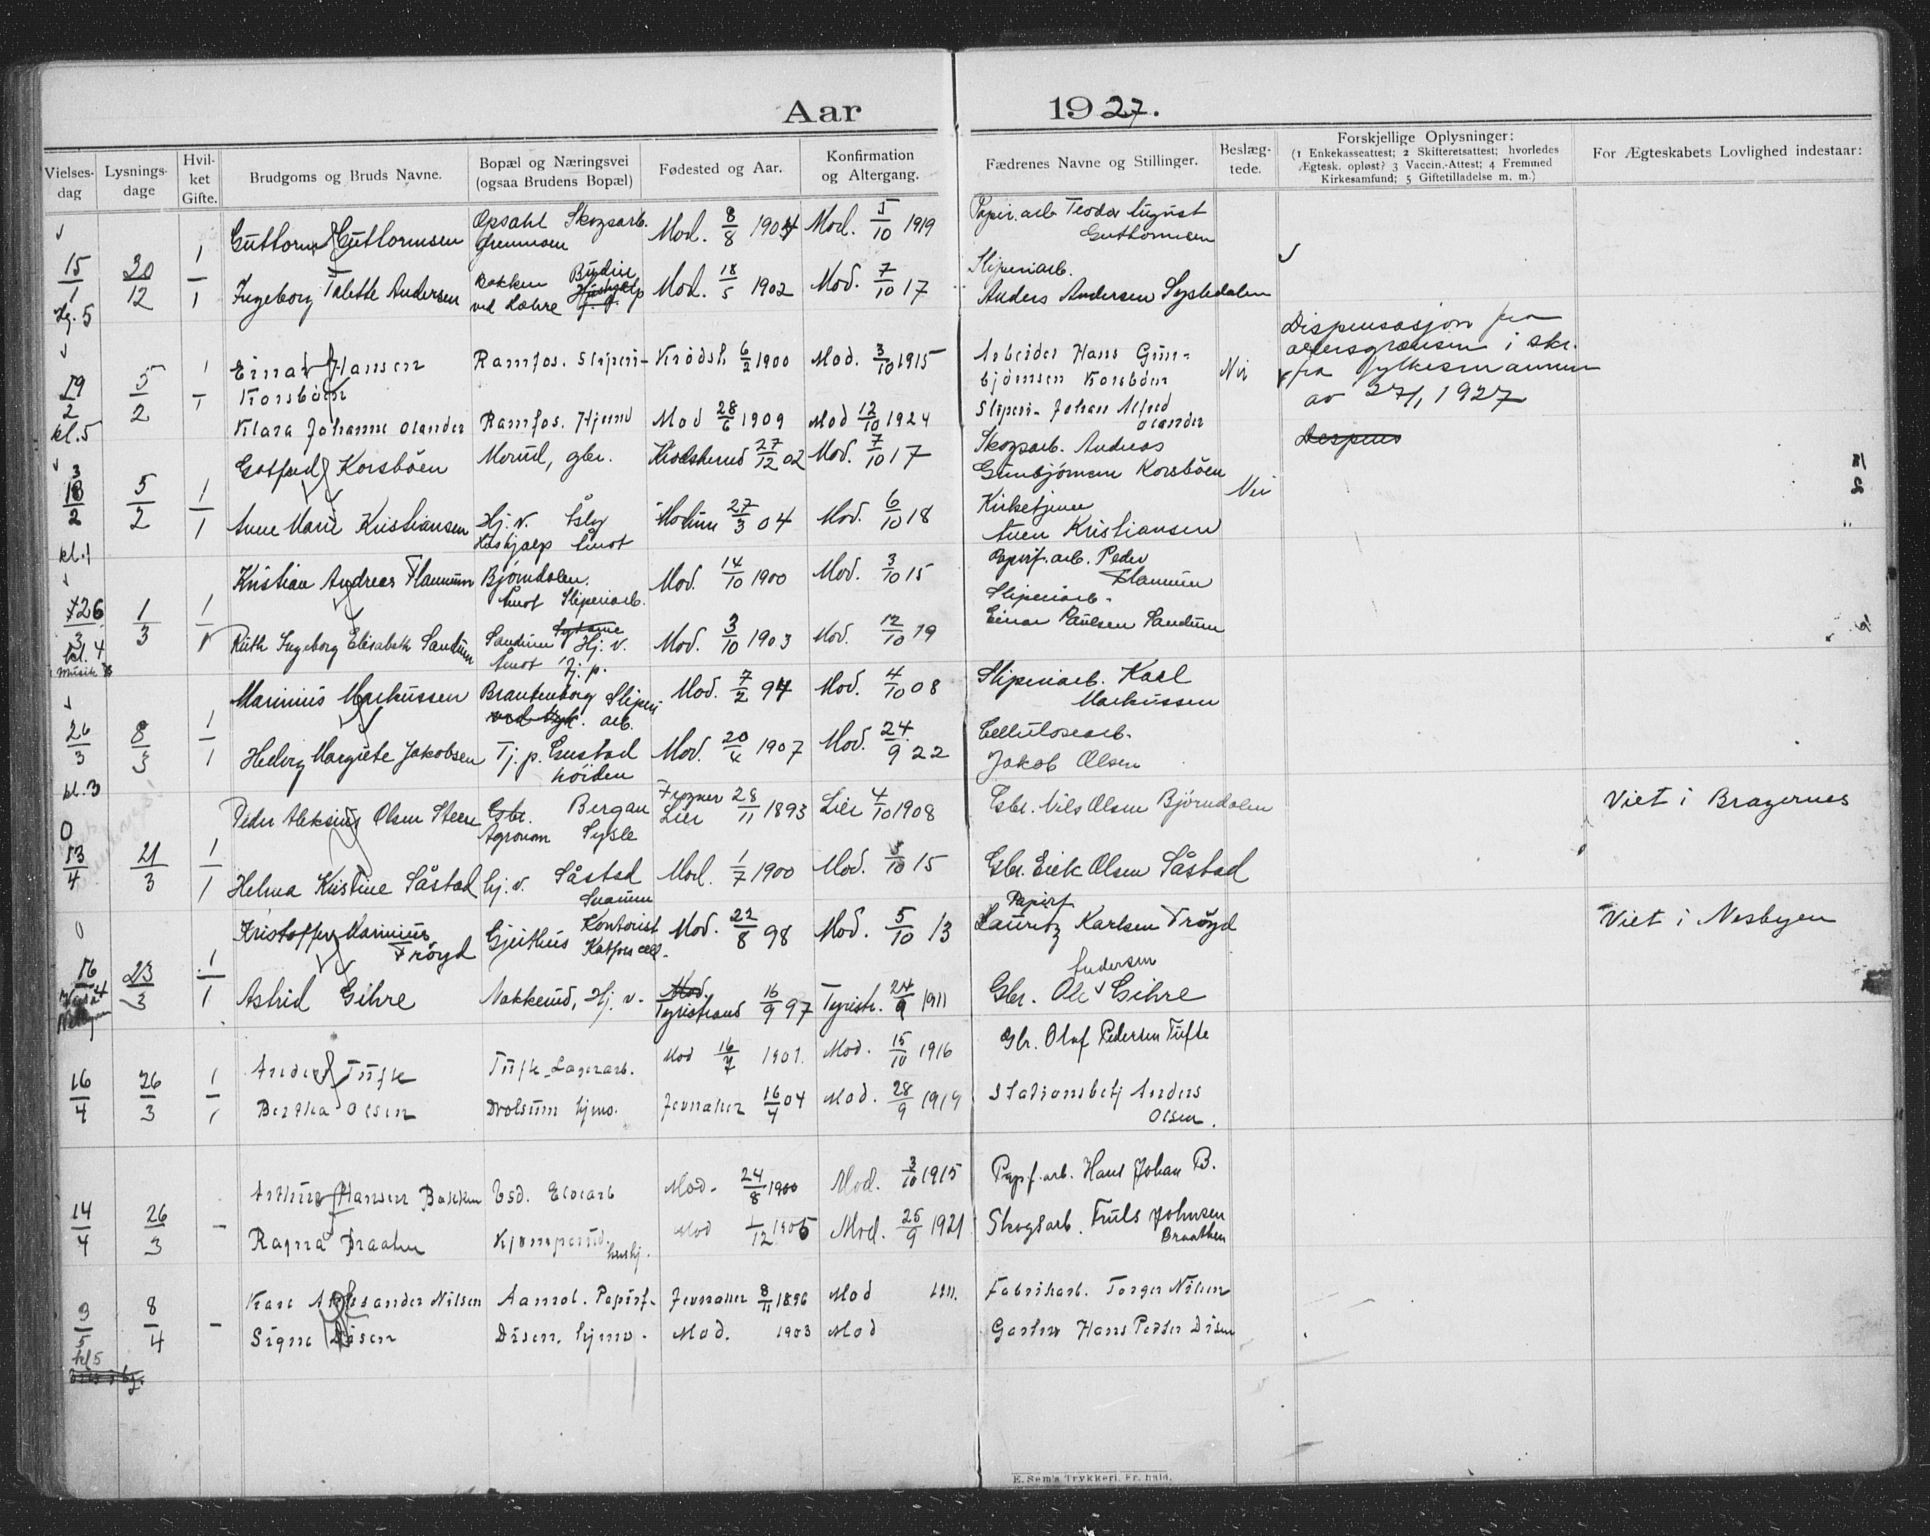 Aar 1927.
Vielses-dag
Lysnings-dage
Hvil-ket Gifte.
Brudgoms og Bruds Navne.
Bopæl og Næringsvei (ogsaa Brudens Bopæl)
Fødested og Aar.
Konfirmation og Altergang.
Fædrenes Navne og Stillinger.
Beslæg-tede.
Forskjellige Oplysninger:
(1 Enkekasseattest; 2 Skifteretsattest; hvorledes
Ægtesk. opløst? 3 Vaccin.-Attest; 4 Fremmed
Kirkesamfund; 5 Giftetilladelse m. m.)
For Ægteskabets Lovlighed indestaar:
15/1 30/12 1/1
Guttorm Guttormsen Opsahl Skogsarb. Mod. 8/8 1904 Mod. 5/10 1919 Papir.arb Teodor August
Guttormsen
Ingeborg Talette Andersen Bakken ved Mod. 18/5 1902 Mod. 7/10 17 Sliperiarb.
Anders Andersen Sysledalen
19/2 5/2 1/1
kl.5
Einar Hansen Ramfos. Sliperi- Krødsh 6/2 1900 Mod. 3/10 1915 Arbeider Hans Gun-
Korsbøen bjørnsen Korsbøen Nei
Dispensasjon fra
aldersgrænsen i skr.
fra fylkesmannen
av 27/1 1927
Klara Johanne Olander Ramfos. Hjemv Mod 28/6 1909 Mod 12/10 1924 Sliperi- Johan Alfred
Olander
Dispens
5/2 1/1
kl.1
Gotfred Korsbøen Morud, gbr. Krødsherred 27/12 02 Mod. 7/10 17 Skogsarb. Andreas
Gunbjørnsen Korsbøen Nei
Anne Marie Kristiansen Hj. v. Åmot Modum 27/3 04 Mod. 6/10 18 Kirketjener
Kristiansen
26/3 1/3 1/1
kl. 4
Musik
Kristian Andreas Flannum Bjørndalen. Mod. 14/10 1900 Mod. 3/10 15 Papirf.arb. Peder
Åmot Sliperiarb. Flannum
Ruth Ingeborg Elisabeth Sandum Sandum Hj. v. Mod. 3/10 1903 Mod. 12/10 19 Sliperiarb.
Åmot Einar Paulsen Sandum
26/3 8/3 1/1
kl.3
Marinius Markussen Brantenborg Sliperi arb. Mod. 7/2 94 Mod. 4/10 08 Sliperiarb. Karl
Markussen
Hedvig Margrete Jakobsen Tj. p. Gustad Mod. 20/4 1907 Mod. 24/9 22 Cellulosearb.
høiden Jakob Olsen
13/4 21/3 1/1
Peder Aleksius Olsen Steen Gbr. Bergan Lier 28/11 1893 Lier 4/10 1908 Gbr. Nils Olsen Bjørndalen Viet i Bragernes
Agronom Sysle
Helma Kristine Såstad hj. v. Såstad Mod. 1/7 1900 Mod. 3/10 15 Gbr. Eirik Olsen Såstad
Snarum
16/4 23/3 1/1
Kristoffer Marinius Gjeithus Kontorist Mod. 22/8 98 Mod. 5/10 13 Papirf.
Frøyd Katfos cell. Lauritz Karlsen Frøyd Viet i Nesbyen
Andersen
Astrid Gihre Nakkerud, Hj. v. Mod. 16/9 97 Tyristr. 24/9 1911 Gbr. Ole Gihre
Tyristrand
16/4 26/3 1/1
Anders Tufte Tufte Lagerarb. Mod 16/7 1901. Mod. 15/10 1916 Gbr. Olaf Pedersen Tufte
Bertha Olsen Drolsum hjmv. Jevnaker 16/4 04 Mod. 28/9 1919 Stationsbetj Anders
Olsen.
14/4 26/3 -
Arthur Hansen Bakken Mod. 24/8 1900 Mod. 3/10 1915 Papf.arb. Hans Johan B.
Ragna Braaten Kjemperud. hushj. Mod 1/12 1905 Mod. 25/9 1921 Skogsarb. Truls Johnsen
Braathen
3/5 8/4 -
kl5
Kare Aleksander Nilsen Aamot. Papirf- Jevnaker 8/11 1896 Mod 1911. Fabrikarb. Torger Nilsen
Signe Disen Disen. hjmv. Mod. 1903 Mod Gartner Hans Petter Disen
E. Sem's Trykkeri. Fr.hald.